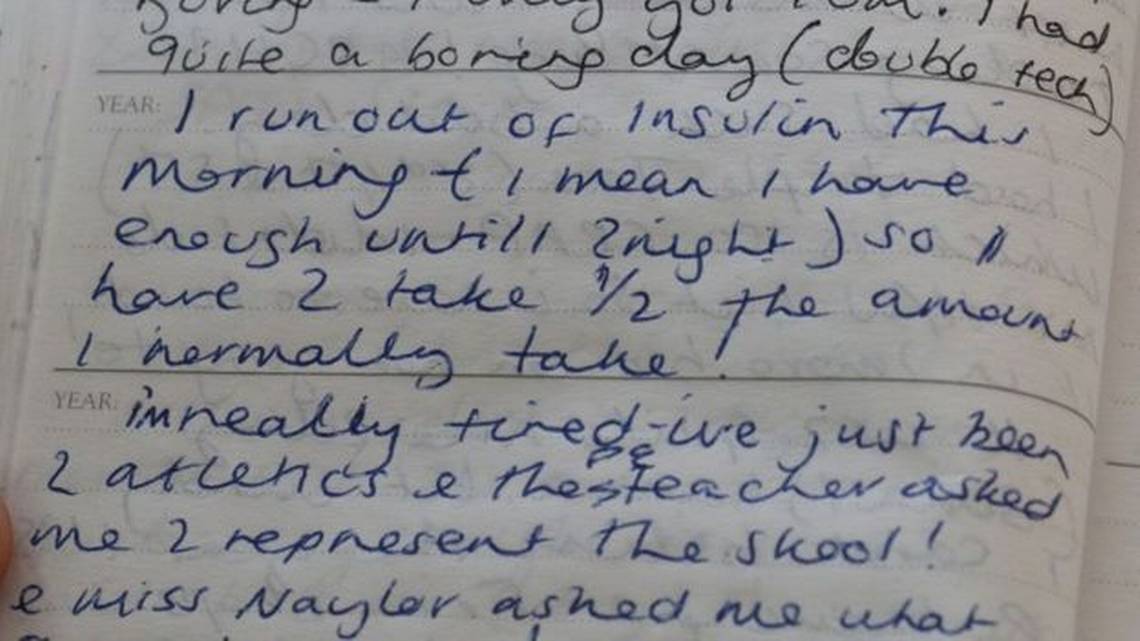 I had
quite a boring day (double tech)
YEAR: I run out of insulin this
morning & (I mean I have
enough untill 2night) so I
have 2 take 1/2 the amount
I normally take!
YEAR: im really tired-ive just been
2 atletics & the PE teacher asked
me 2 represent the skool!
& miss Naylor asked me what